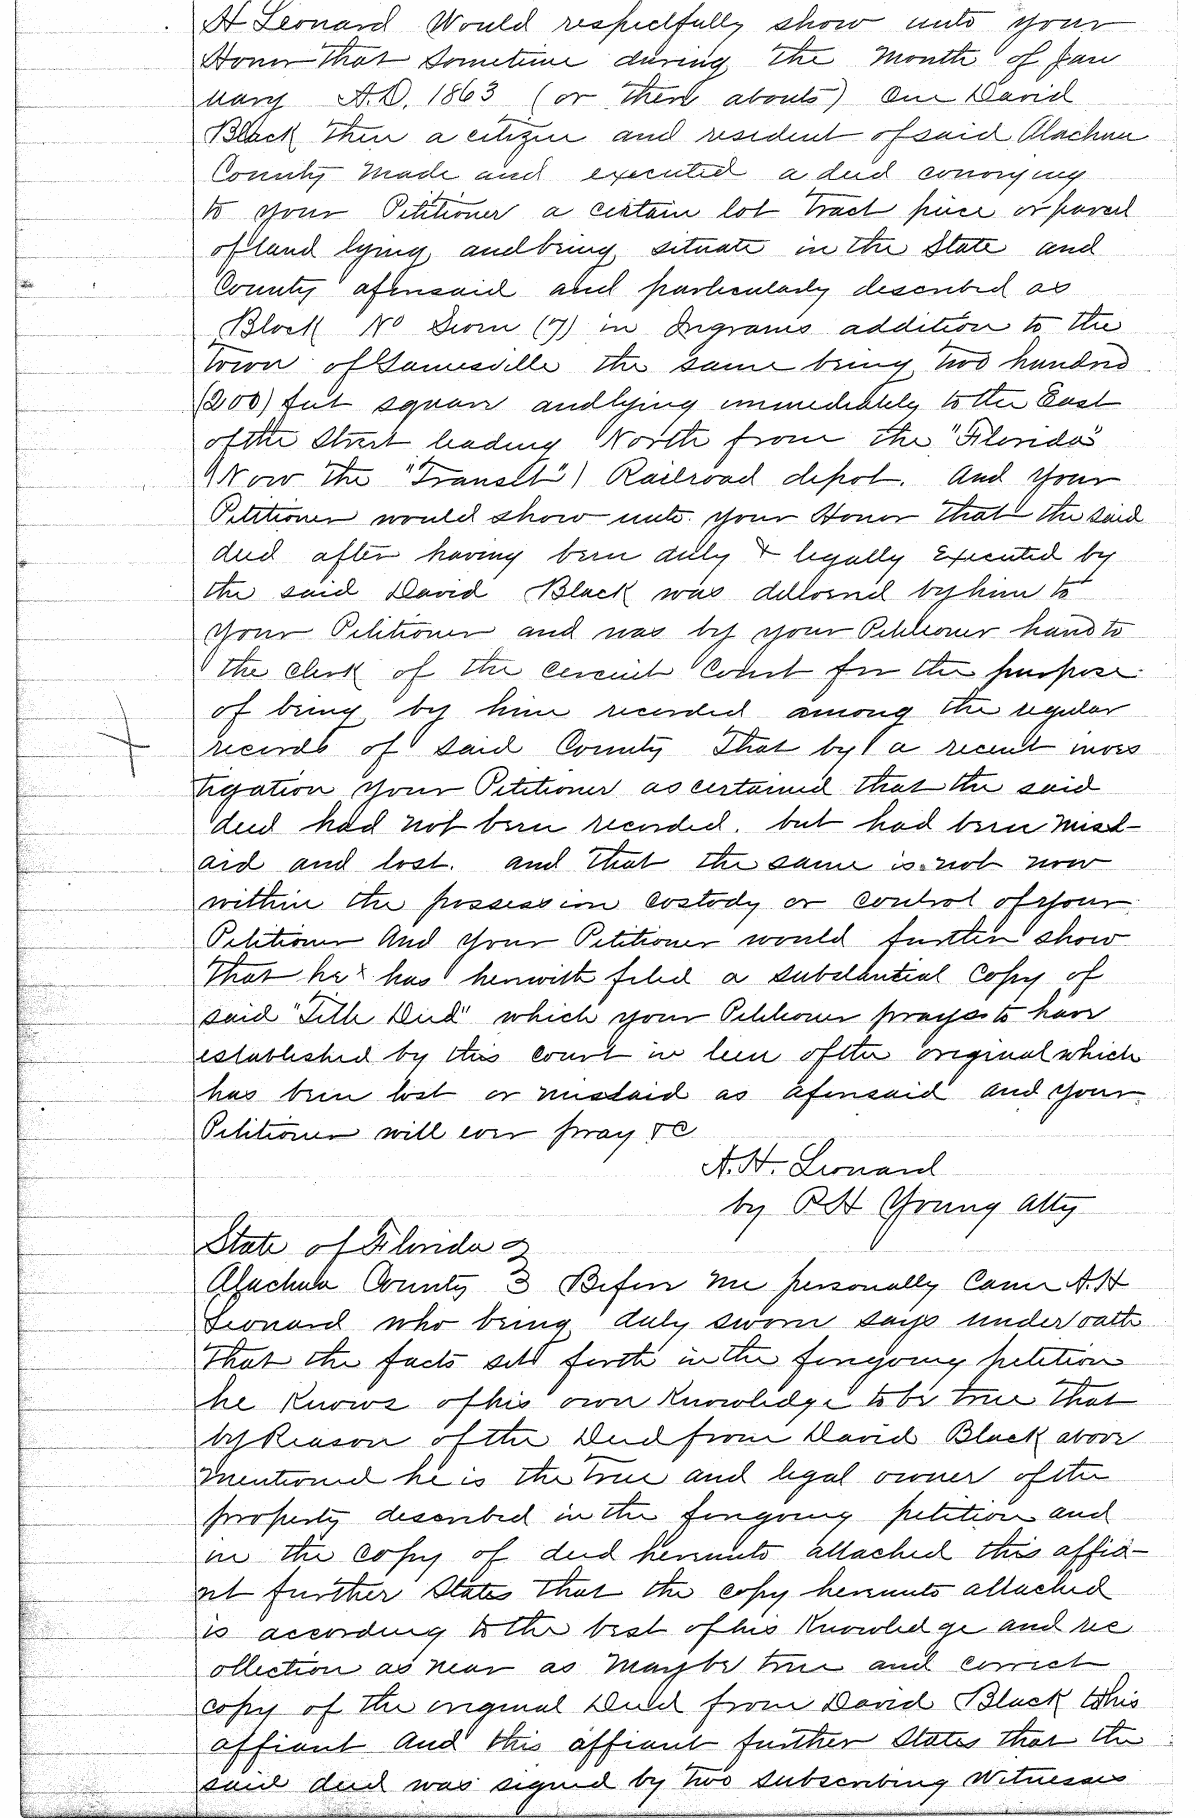 H Leonard Would respectfully show unto your
Honor That Sometime during the Month of Jan
uary A.D. 1863 (or there abouts) One David
Black then a citizen and resident of said Alachua
County Made and executed a deed conveying
to your Petitioner a certain lot tract piece or parcel
of land lying and being situate in the State and
County aforesaid and particularly described as
Block No Seven (7) in Ingrams addition to the
Town of Gainesville the same being two hundred
(200) feet square and lying immediately to the East
of the Street leading North from the "Florida"
(Now the "Transit") Railroad depot. And your
Petitioner would show unto your Honor that the said
deed after having been duly & legally Executed by
the said David Black was delivered by him to
your Petitioner and was by your Petitioner hand to
the clerk of the Circuit Court for the purpose
of being by him recorded among the regular
records of said County That by a recent inves
tigation your Petitioner ascertained that the said
deed had not been recorded. but had been misl-
aid and lost. and that the same is not now
within the possession custody or control of your
Petitioner And your Petitioner would further show
That he has herewith filed a substantial copy of
said "Title Deed" which your Petitioner prays to have
established by this court in lieu of the original which
has been lost or mislaid as aforesaid and your
Petitioner will ever pray &c
A. H. Leonard
by R H Young Atty
State of Florida }
Alachua County } Before me personally came A. H
Leonard who being duly sworn says under oath
that the facts sett forth in the foregoing petition
he knows of his own knowledge to be true that
by Reason of the Deed from David Black above
mentioned he is the true and legal owner of the
property described in the foregoing petition and
in the copy of deed hereunto attached this affia-
nt further States that the copy hereunto attached
is according to the best of his knowledge and rec
ollection as near as may be true and correct
copy of the original Deed from David Black to this
affiant And this affiant further States that the
said deed was signed by two subscribing Witnesses